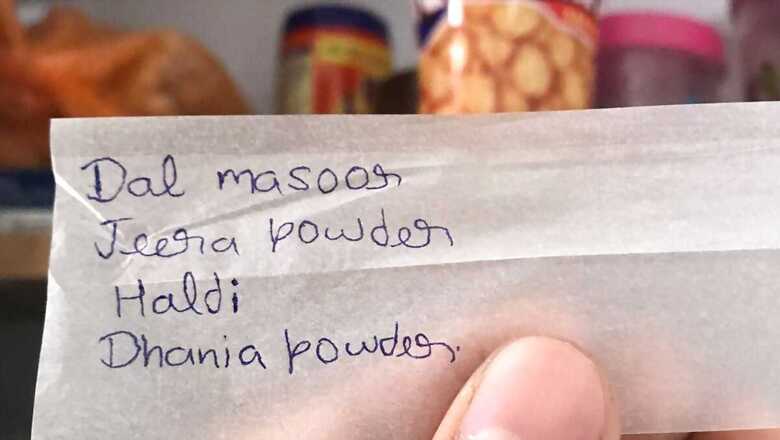 Dal masoor
Jeera powder
Haldi
Dhania powder.